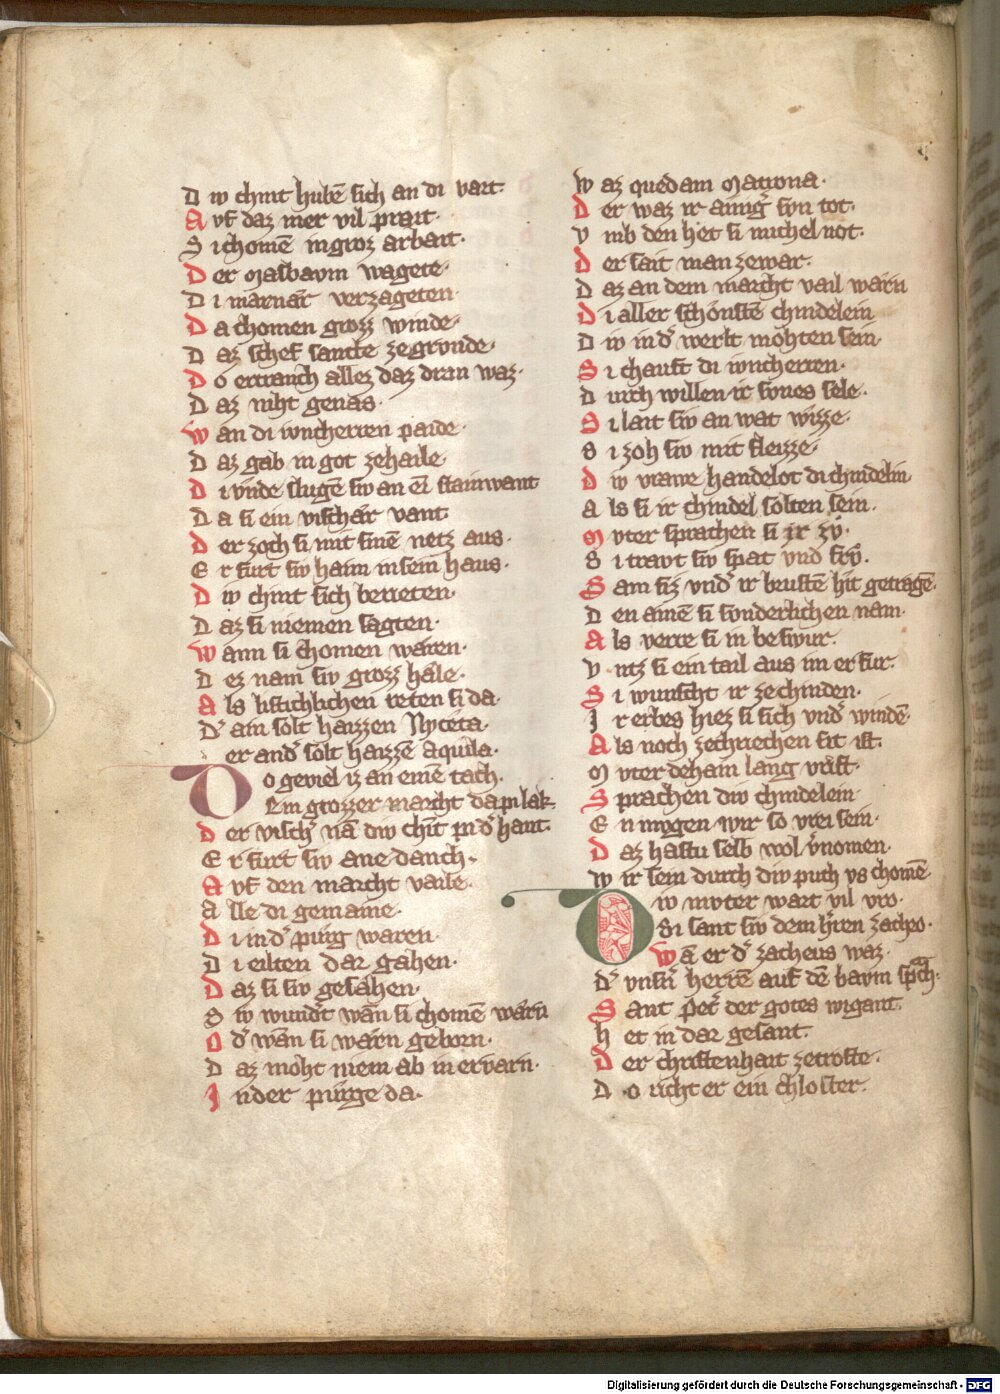 D iv chint hubē sich an di vart·
A vf daz mer vil prait·
S i chomē in groz arbait·
D er masbavm wagete·
D i marnär verzageten·
D a chomen grozz winde·
D az schef sancte ze grvnde·
D o ertranch allez daz dran waz·
D az niht genas·
W an di ivncherren paide·
D az gab in got ze haile·
D i vnde slugē siv an eī stainwant
D a si ein vischär vant·
D er zoch si mit sinē netz aus·
E r furt siv haim in sein haus·
D iv chint sich berieten·
D az si niemen sagten·
W ann si chomen wären·
D ez nam siv grozz häle·
A ls listichlichen rieten si da·
D͛ ain solt haizzen Nyceta·
er and͛ solt haizzē Aquila·
D o geviel iz an einē tach·
Ein grozzer marcht da pi lak·
D er visch͛ nā div chīt pi d͛ hant·
E r furt siv ane danch·
A vf den marcht vaile·
A lle di gemaine·
D i in d͛ pürg waren·
D i eilten dar gähen·
D az si siv gesähen·
S iv wund͛t wān si chomē wärn
O d͛ wān si wärn geborn·
D az moht niem ab in ervarn·
I n der pürge da·
W az quedam matrona·
D er waz ir ainig͛ svn tot·
V mb den het si michel not·
D er sait man zewar·
D az an dem marcht vail wärn
D i aller schönstē chindelein
D iv in d͛ werlt mohten sein·
S i chauft di ivncherren·
D urch willen ir svnes sele·
S i lait siv an wat wizze·
S i zoh siv mit fleizze·
D iv vrawe handelot di chindelin
A ls si ir chindel solten sein·
M vter sprachen si ir zv·
S i travt siv spat vnd frv·
S am siz vnd͛ ir brustē hit getragē·
D en ainē si svnderlichen nam·
A ls verre si in beswur·
V ntz si ein tail aus im erfur·
S i wunscht ir ze chinden·
I r erbes hiez si sich vnd͛ windē·
A ls noch ze chriechen sit ist·
M vter dehain lang vrist·
S prachen div chindelein
E n mvgen wir so vrei sein·
D az hastu selb wol v͛nomen·
W ir sein durch div puch vs chomē
D iv mvter wart vil vro·
Si sant siv dem h͛ren zacheo·
Wā er d͛ zacheus waz·
D͛ vnsır͛ herrē auf dē bavm sprach·
S ant pet͛ der gotes wigant·
H et in dar gesant·
D er christenhait ze troste·
D o richt er ein chloster·
Digitalisierung gefördert durch die Deutsche Forschungsgemeinschaft - DFG